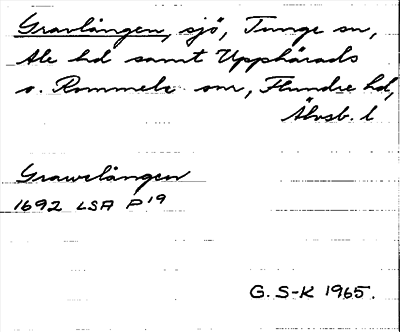 Gravlången, sjö, Tunge sn,
Ale hd samt Upphärads
o. Rommele snr, Flundre hd,
Älvsb. l
Grawelängen
1692 LSA P19
G. S-K 1965.